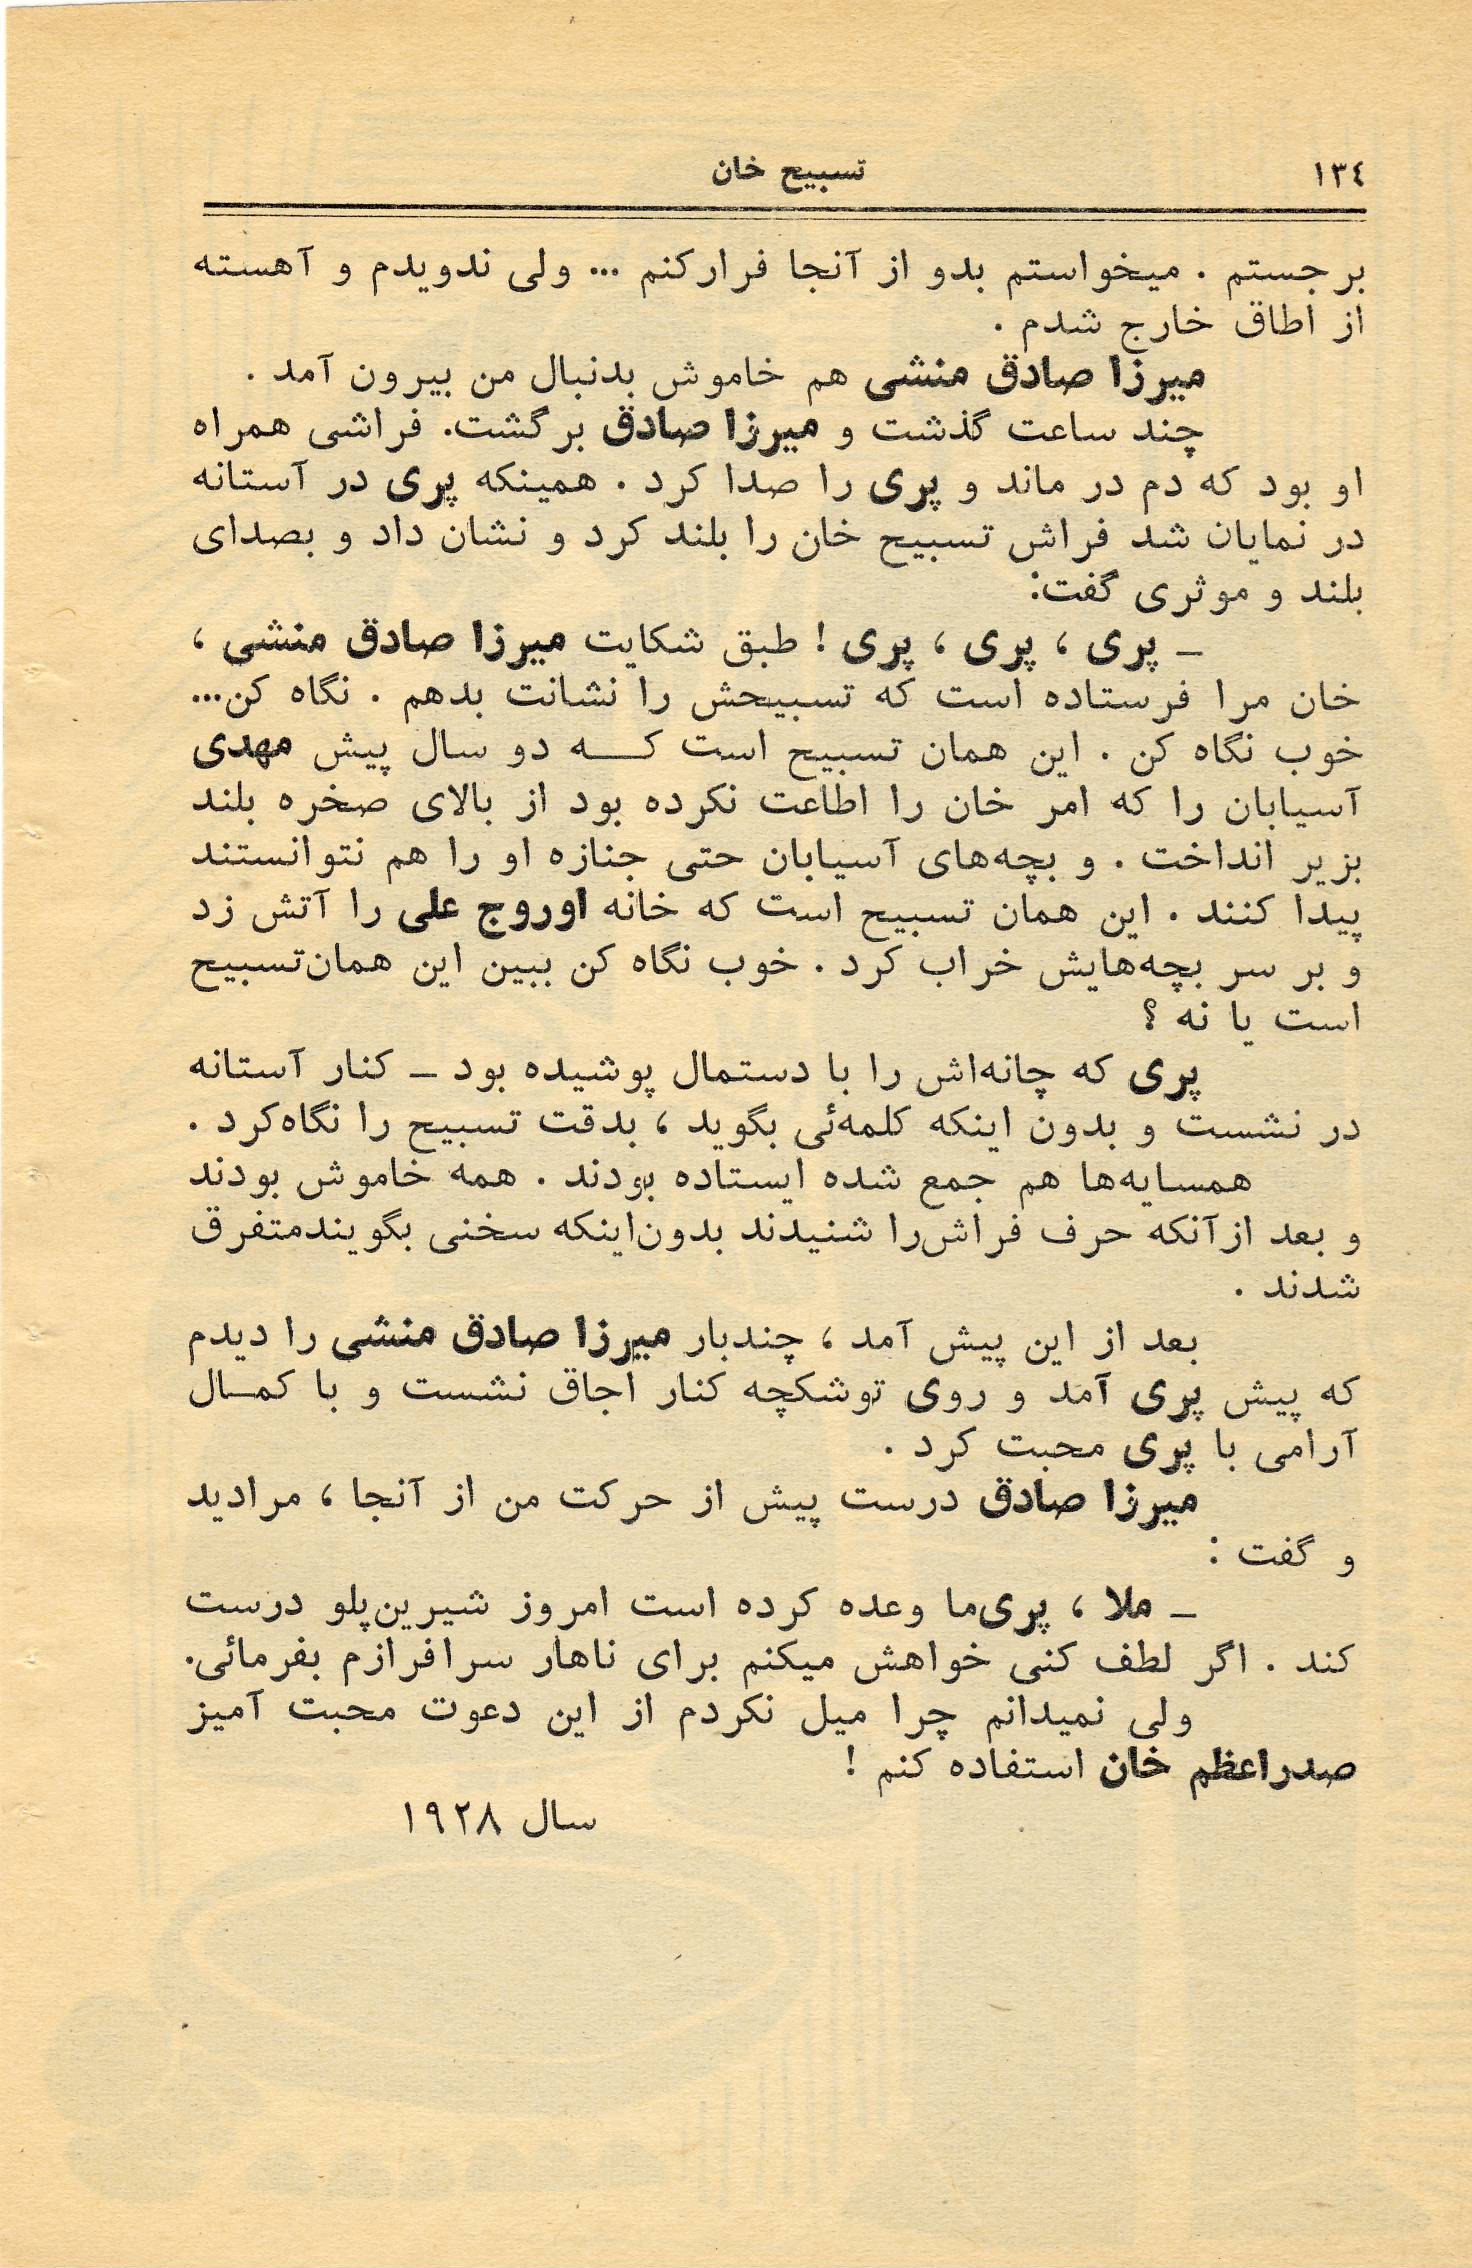 ١٣٤ تسبیح خان
برجستم . میخواستم بدو از آنجا فرارکنم ... ولی ندویدم و آهسته
از اطاق خارج شدم .
میرزا صادق منشی هم خاموش بدنبال من بیرون آمد .
چند ساعت گذشت و میرزا صادق برگشت. فراشی همراه
او بود که دم در ماند و پری را صدا کرد . همینکه پری در آستانه
در نمایان شد فراش تسبیح خان را بلند کرد و نشان داد و بصدای
بلند و موثری گفت:
ـ پری ، پری ، پری ! طبق شکایت میرزا صادق منشی ،
خان مرا فرستاده است که تسبیحش را نشانت بدهم . نگاه کن...
خوب نگاه کن . این همان تسبیح است کـــه دو سال پیش مهدی
آسیابان را که امر خان را اطاعت نکرده بود از بالای صخره بلند
بزیر انداخت . و بچه‌های آسیابان حتی جنازه او را هم نتوانستند
پیدا کنند . این همان تسبیح است که خانه اوروج علی را آتش زد
و بر سر بچه‌هایش خراب کرد . خوب نگاه کن ببین این همان‌تسبیح
است یا نه ؟
پری که چانه‌اش را با دستمال پوشیده بود ـ کنار آستانه
در نشست و بدون اینکه کلمه‌ئی بگوید ، بدقت تسبیح را نگاه‌کرد .
همسایه‌ها هم جمع شده ایستاده بودند . همه خاموش بودند
و بعد ازآنکه حرف فراش‌را شنیدند بدون‌اینکه سخنی بگویندمتفرق
شدند .
بعد از این پیش آمد ، چندبار میرزا صادق منشی را دیدم
که پیش پری آمد و روی توشکچه کنار اجاق نشست و با کمـال
آرامی با پری محبت کرد .
میرزا صادق درست پیش از حرکت من از آنجا ، مرادید
و گفت :
ـ ملا ، پری‌ما وعده کرده است امروز شیرین‌پلو درست
کند . اگر لطف کنی خواهش میکنم برای ناهار سرافرازم بفرمائی.
ولی نمیدانم چرا میل نکردم از این دعوت محبت آمیز
صدراعظم خان استفاده کنم !
سال ١٩٢٨